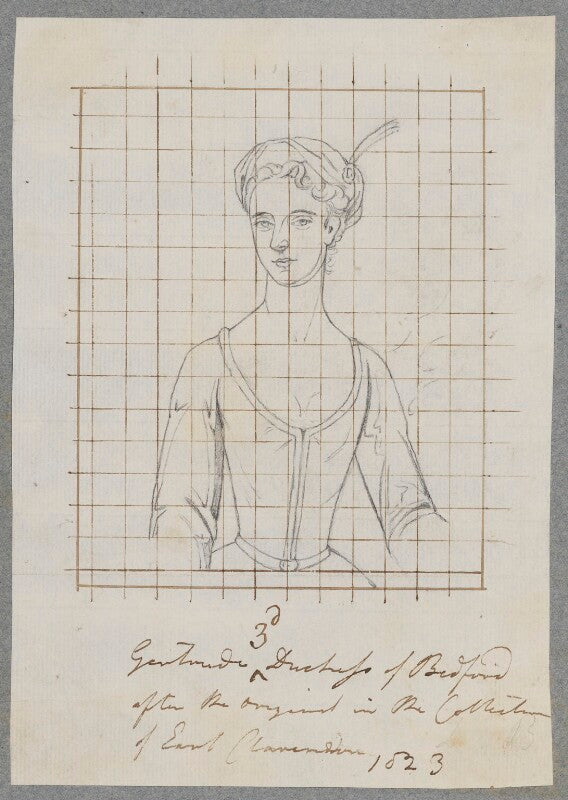 3d
Gertrude ^ Duchess of Bedford
after the original in the Collection
of Earl Clarendon 1823